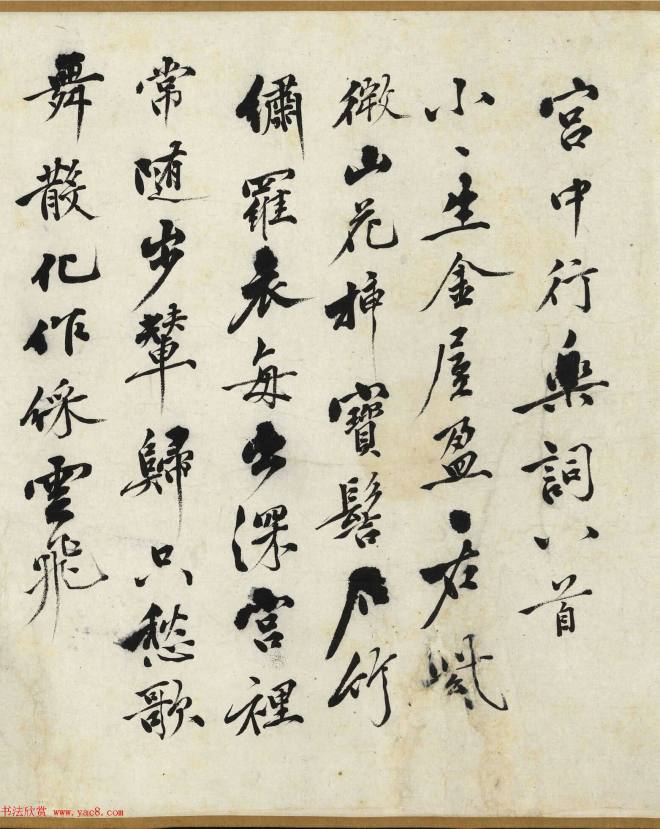 宮中行樂詞八首
小、生金屋盈、在紫
微山花插寶髻石竹
繡羅衣每出深宮裡
常隨步輦歸只愁歌
舞散化作綵雲飛
书法欣赏 www.yac8.com